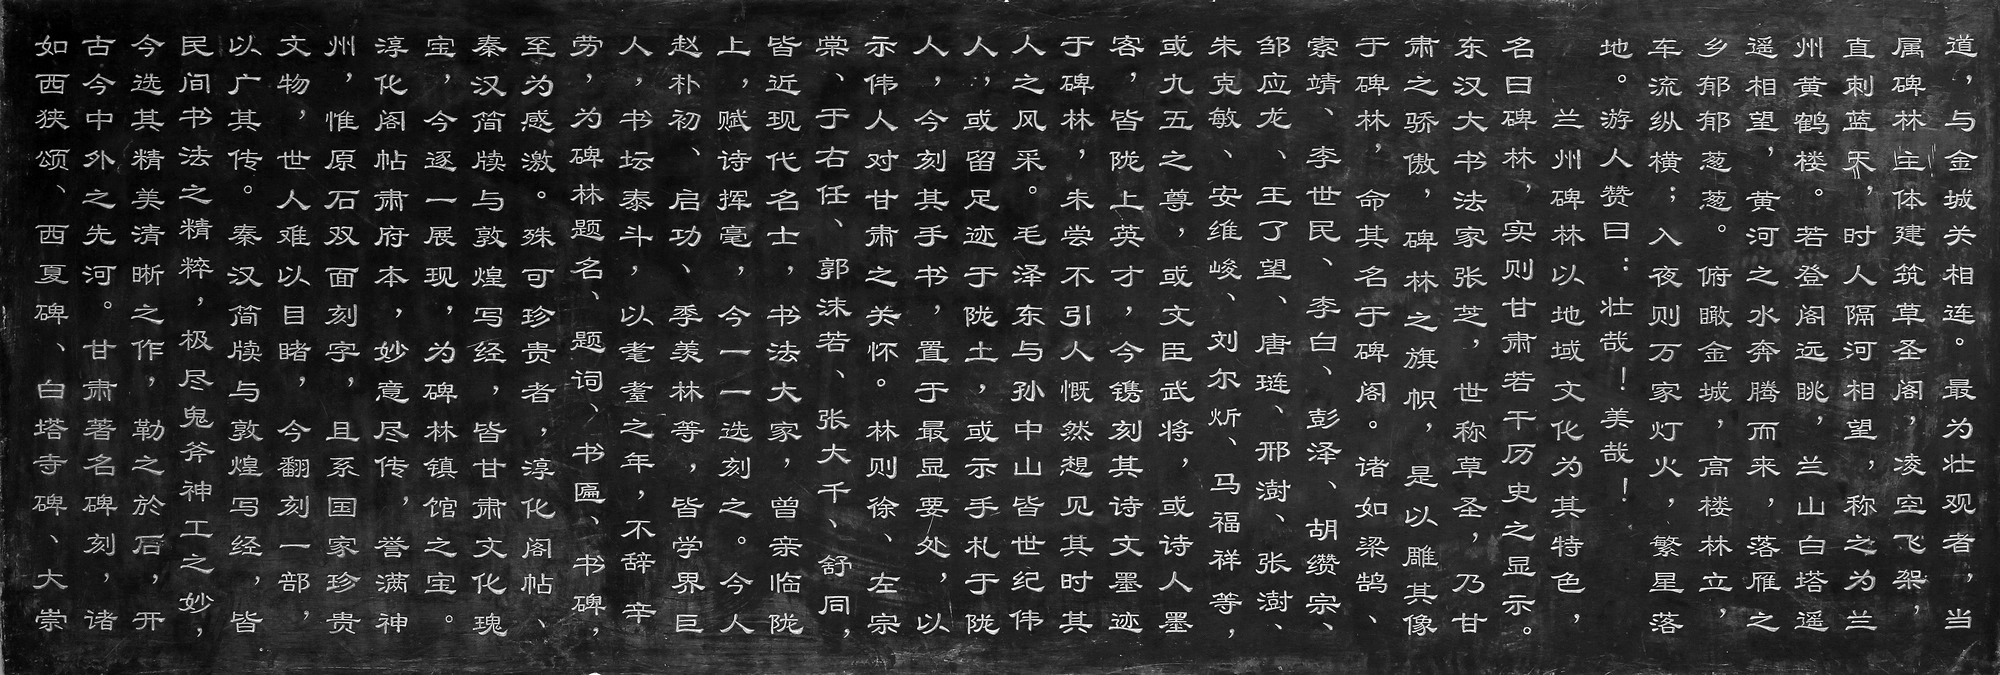 道，与金城关相连。最为壮观者，当
属碑林主体建筑草圣阁，凌空飞架，
直刺蓝天，时人隔河相望，称之为兰
州黄鹤楼。若登阁远眺，兰山白塔遥
遥相望，黄河之水奔腾而来，落雁之
乡郁郁葱葱。俯瞰金城，高楼林立，
车流纵横；入夜则万家灯火，繁星落
地。游人赞曰：壮哉！美哉！
兰州碑林以地域文化为其特色，
名曰碑林，实则甘肃若干历史之显示。
东汉大书法家张芝，世称草圣，乃甘
肃之骄傲，碑林之旗帜，是以雕其像
于碑林，命其名于碑阁。诸如梁鹄、
索靖、李世民、李白、彭泽、胡缵宗、
邹应龙、王了望、唐琏、邢澍、张澍、
朱克敏、安维峻、刘尔炘、马福祥等，
或九五之尊，或文臣武将，或诗人墨
客，皆陇上英才，今镌刻其诗文墨迹
于碑林，未尝不引人慨然想见其时其
人之风采。毛泽东与孙中山皆世纪伟
人，或留足迹于陇土，或示手札于陇
人，今刻其手书，置于最显要处，以
示伟人对甘肃之关怀。林则徐、左宗
棠、于右任、郭沫若、张大千、舒同，
皆近现代名士，书法大家，曾亲临陇
上，赋诗挥毫，今一一选刻之。今人
赵朴初、启功、季羡林等，皆学界巨
人，书坛泰斗，以耄耋之年，不辞辛
劳，为碑林题名、题词、书匾、书碑，
至为感激。殊可珍贵者，淳化阁帖、
秦汉简牍与敦煌写经，皆甘肃文化瑰
宝，今逐一展现，为碑林镇馆之宝。
淳化阁帖肃府本，妙意尽传，誉满神
州，惟原石双面刻字，且系国家珍贵
文物，世人难以目睹，今翻刻一部，
以广其传。秦汉简牍与敦煌写经，皆
民间书法之精粹，极尽鬼斧神工之妙，
今选其精美清晰之作，勒之於后，开
古今中外之先河。甘肃著名碑刻，诸
如西狭颂、西夏碑、白塔寺碑、大崇